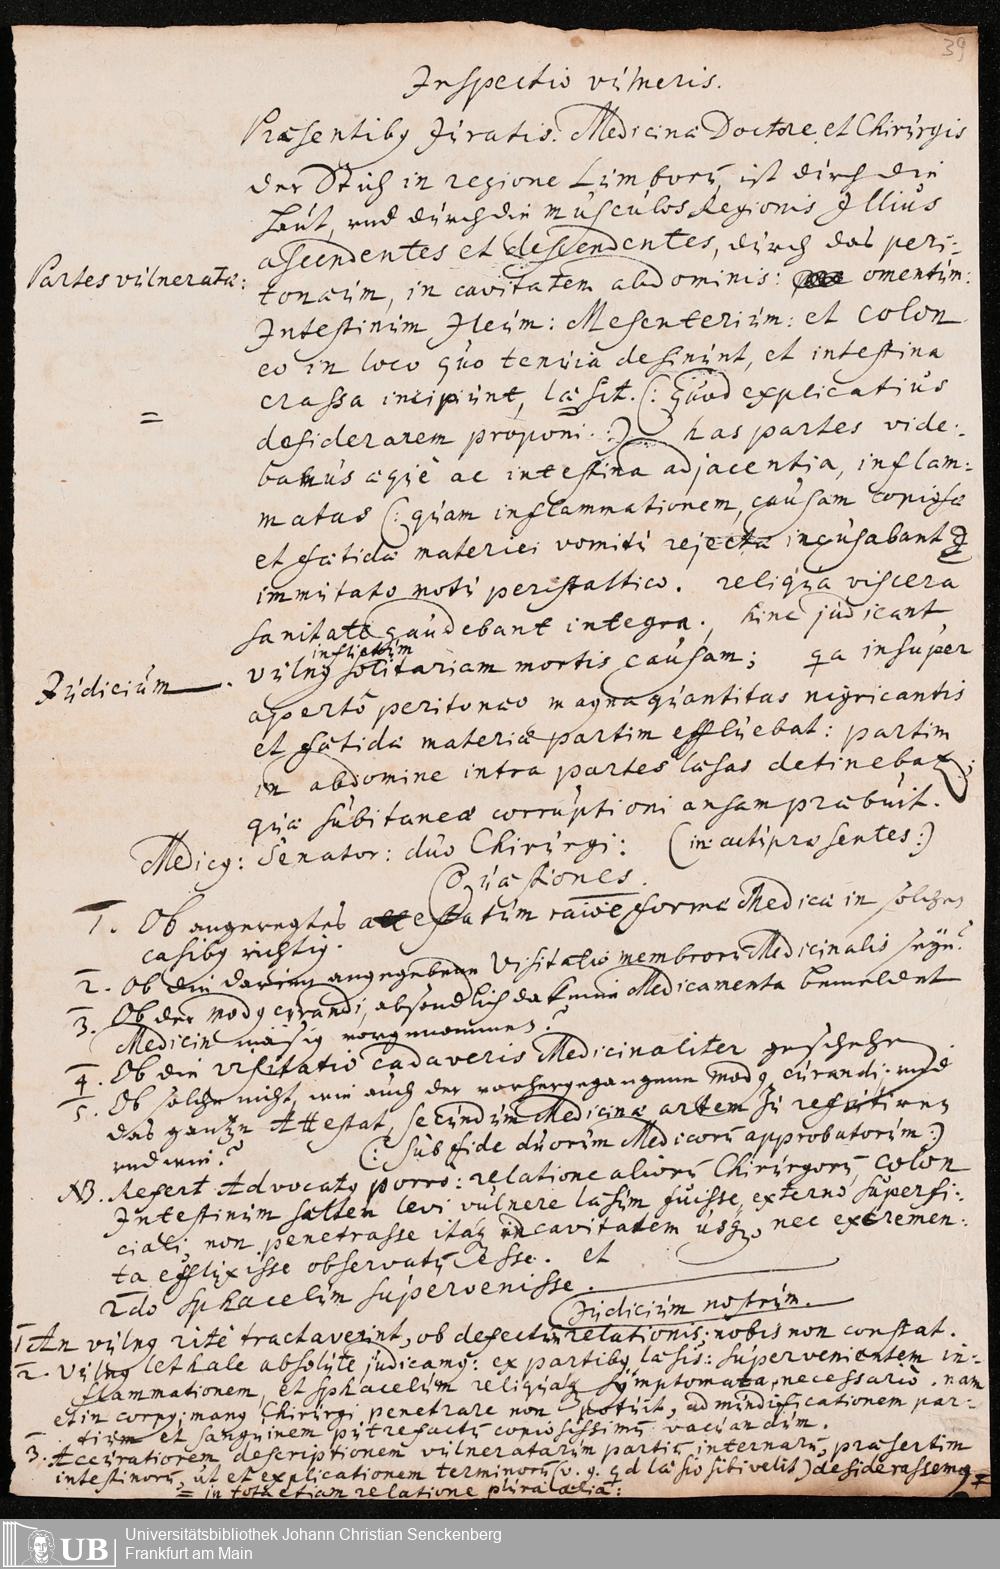 39
Inspectio vulneris.
Præsentibꝯ Juratis. Medicinæ Doctore et Chirurgis
der Stich in regione Lumborū ist durch die
Haut, und durch die musculos Regionis Ilius
ascendentes et descendentes, durch das peri-
Partes vulneratæ:
tonæum, in cavitatem abdominis: omentum:
Intestinum Ileum: Mesenterium: et Colon
eo in loco quo tenuia desinunt, et intestina
crassa incipiunt, læsit. (: Quod explicatius
=
desiderarem proponi :) has partes vide-
bamus æquè ac intestina adjacentia, inflam-
matas (: quam inflammationem, causam copiosæ
et fœtidæ materiei vomitu rejectæ incusabant
immutato motu peristaltico. reliqua viscera
sanitate gaudebant integra., hinc judicant
inflictum
Judicium
vulnꝯ solitariam mortis causam; qa insuper
apertô peritonæo magna quantitas nigricantis
et fœtidæ materiæ partim effluebat: partim
in abdomine intra partes læsas detinebat;
quæ subitaneæ corruptioni ansam præbuit.
Medicꝯ: Senator: duo Chirurgi: (in: acti præsentes:)
Quæstiones.
1. Ob angeregtes attestatum raõe formæ Medicæ in solchen
casibꝯ richtig.
2. Ob die darin angegebene Visitatio membrorū Medicinalis seyn?
3. Ob der modꝯ curandi, absonderlich da keine Medicamenta bemeldet
Medicin mäsig vorgenommen?
4. Ob die visitatio cadaveris Medicinaliter geschehen.
5. Ob solche nicht, wie auch der vorhergegangene modꝯ curandi, und
das gantze Attestat, secundùm Medicinæ artem zu refutiren
und wie? (: sub fide duorum Medicorū approbatorum :)
NB. Refert Advocatꝯ porro: relatione aliorū Chirurgorū, Colon
Intestinum saltem levi vulnere læsum fuisse, externo superfi-
ciali, non penetrasse itaq in cavitatem usq, nec excremen-
ta effluxisse observatū esse. et
2do sphacelum supervenisse.
Judicium nostrum.
1 An vulnꝯ ritè tractaverint, ob defectum relationis, nobis non constat.
2. Vulnꝯ lethale absolutè judicamꝯ: ex partibꝯ læsis: supervenientem in-
flammationem, et sphacelum reliquaq symptomata, necessariò. nam
et in corpꝯ, manꝯ Chirurgi penetrare non potuit, ad mundificationem par-
tium et sanguinem putrefactū copiosissimū vacuandum.
3. Accuratiorem descriptionem vulneratarum partiū internarū, præsertim
intestinorū, ut et explicationem terminorū (v. g. qd læsio sibi velit) desiderassemꝯ
= in tota etiam relatione plura alia:
UB
Universitätsbibliothek Johann Christian Senckenberg
Frankfurt am Main